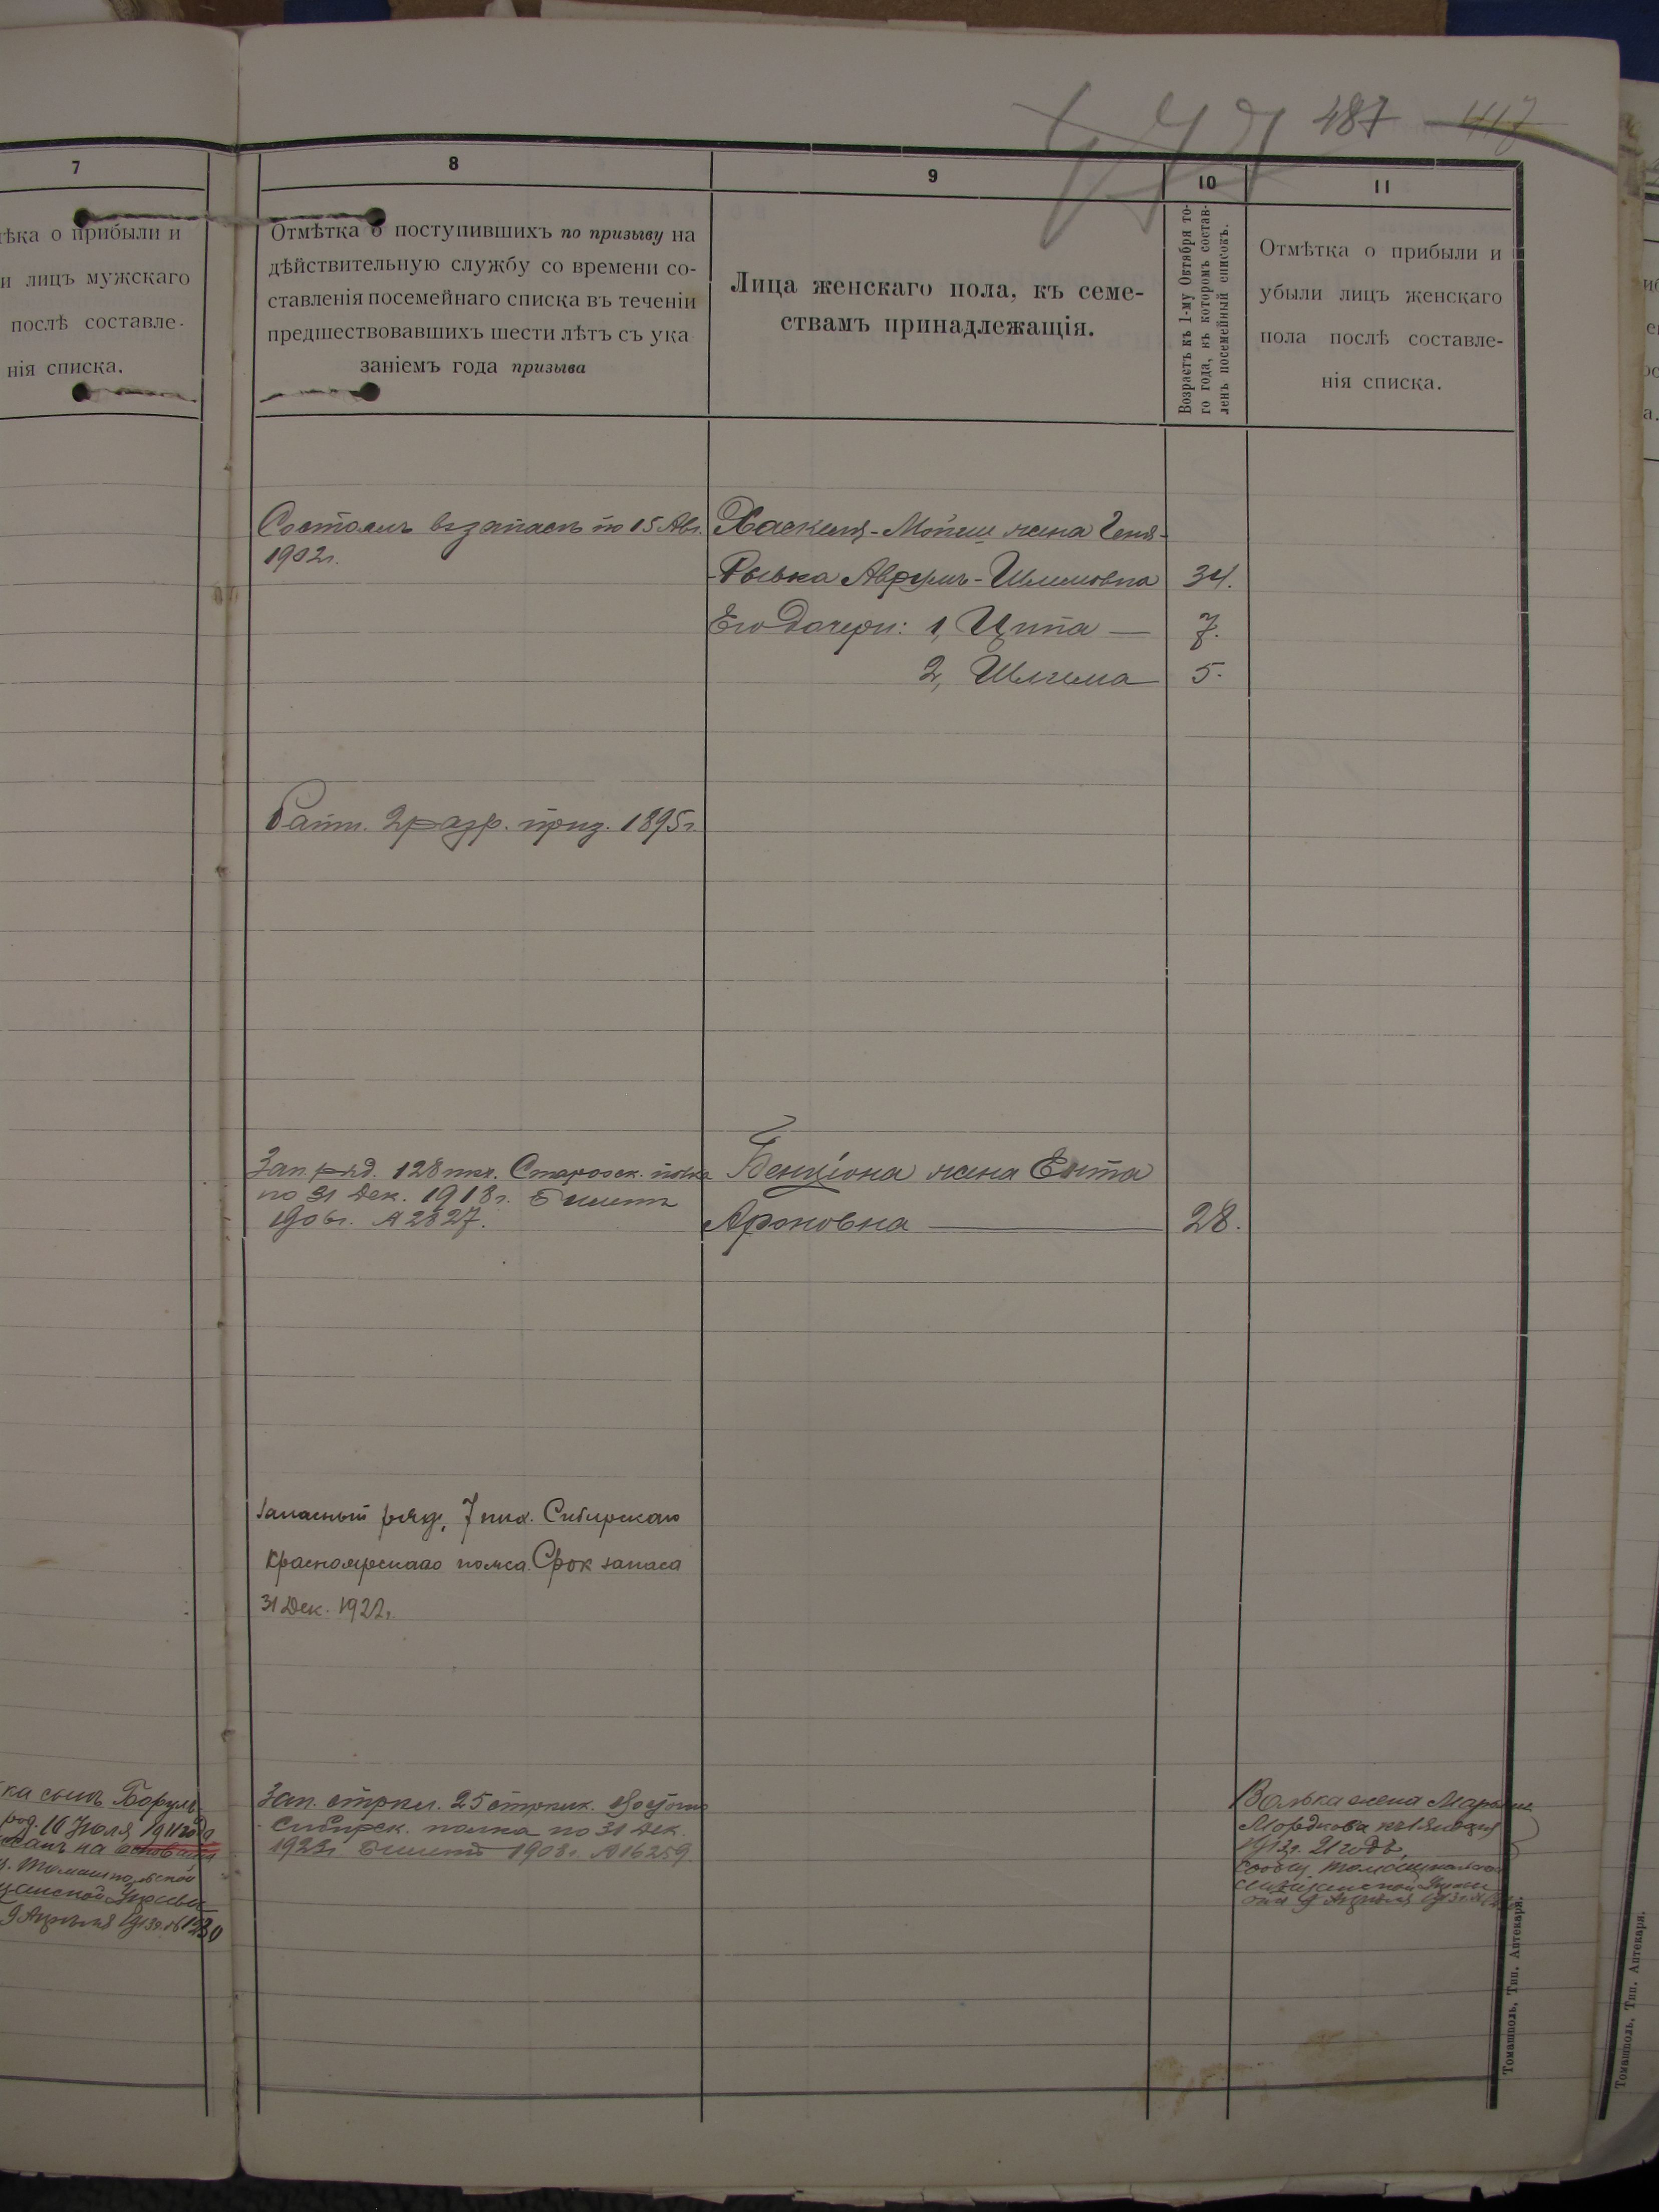 487 417
7
ѣка о прибыли и
и лицъ мужскаго
послѣ составле-
нія списка.
8
Отмѣтка о поступившихъ по призыву на
дѣйствительную службу со времени со-
ставленія посемейнаго списка въ теченіи
предшествовавшихъ шести лѣтъ съ ука
заніемъ года призыва
9
Лица женскаго пола, къ семе-
ствамъ принадлежащія.
10
Возрастъ къ 1-му Октября то-
го года, въ которомъ состав-
ленъ посемейный списокъ.
11
Отмѣтка о прибыли и
убыли лицъ женскаго
пола послѣ составле-
нія списка.
Состоялъ въ запасѣ по 15 Авг.
1902г.
Хаскеля-Мошки жена Геня-
-Рывка Аврумъ-Шлиомовна 34.
Его дочери: 1, Ципа — 7.
2, Шлима 5.
Ратн. 2 разр. приз. 1895г.
Зап. ряд. 128 пех. Староск. полка
по 31 Дек. 1918г. Билетъ
1906г. № 2827.
Бенціона жена Ента
Ароновна — 28.
Запасный ряд. 7 пех. Сибирскаго
Красноярскаго полка. Срок запаса
31 Дек. 1922г.
ка сынъ Борухъ
род. 16 Іюля 1911 года
на основаніи
Томашпольской
9 Апрѣля 1913г. № 1230
Зап. стрѣл. 25 стрѣлк.
Сибирск. полка по 31 Дек.
1923г. Билетъ 1908г. № 16259
Волька жена Марьям
Мордкова къ 1 Января
1913г. 21 годъ,
сообщ. Томашпольской
мѣщанской Управы
отъ 9 Апрѣля 1913г. №
Томашполь, Тип. Аптекаря.
Томашполь, Тип. Аптекаря.